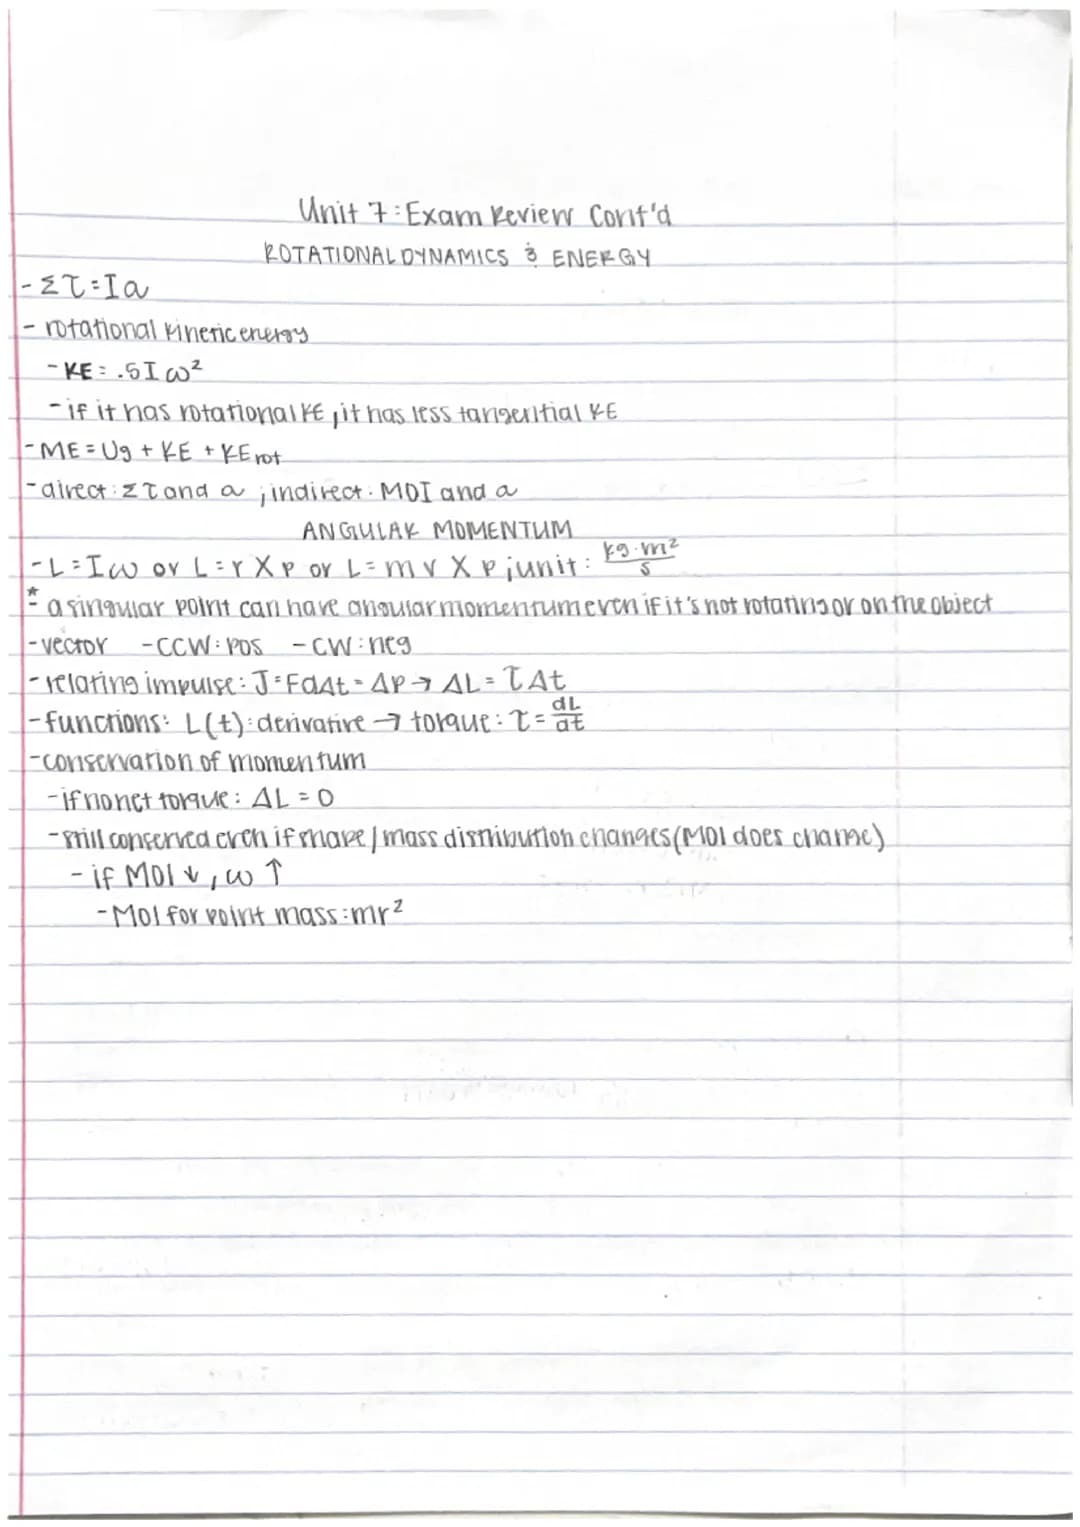 Unit 7: Exam Review Cont'd
ROTATIONAL DYNAMICS & ENERGY
- Στ = Iα
- rotational kinetic energy
- KE = .5Iω²
- if it has rotational KE, it has less tangential KE
- ME = Ug + KE + KErot
- direct: Στ and α ; indirect: MOI and α
ANGULAR MOMENTUM
- L = Iω or L = r X p or L = mv X p ; unit: kg·m²/s
* - a singular point can have angular momentum even if it's not rotating or on the object
- vector - CCW: pos - CW: neg
- relating impulse: J = FΔt = Δp → ΔL = τΔt
- functions: L(t): derivative → torque: τ = dL/dt
- conservation of momentum
- if no net torque: ΔL = 0
- still conserved even if shape/mass distribution changes (MOI does change)
- if MOI ↓, ω ↑
- MOI for point mass: mr²